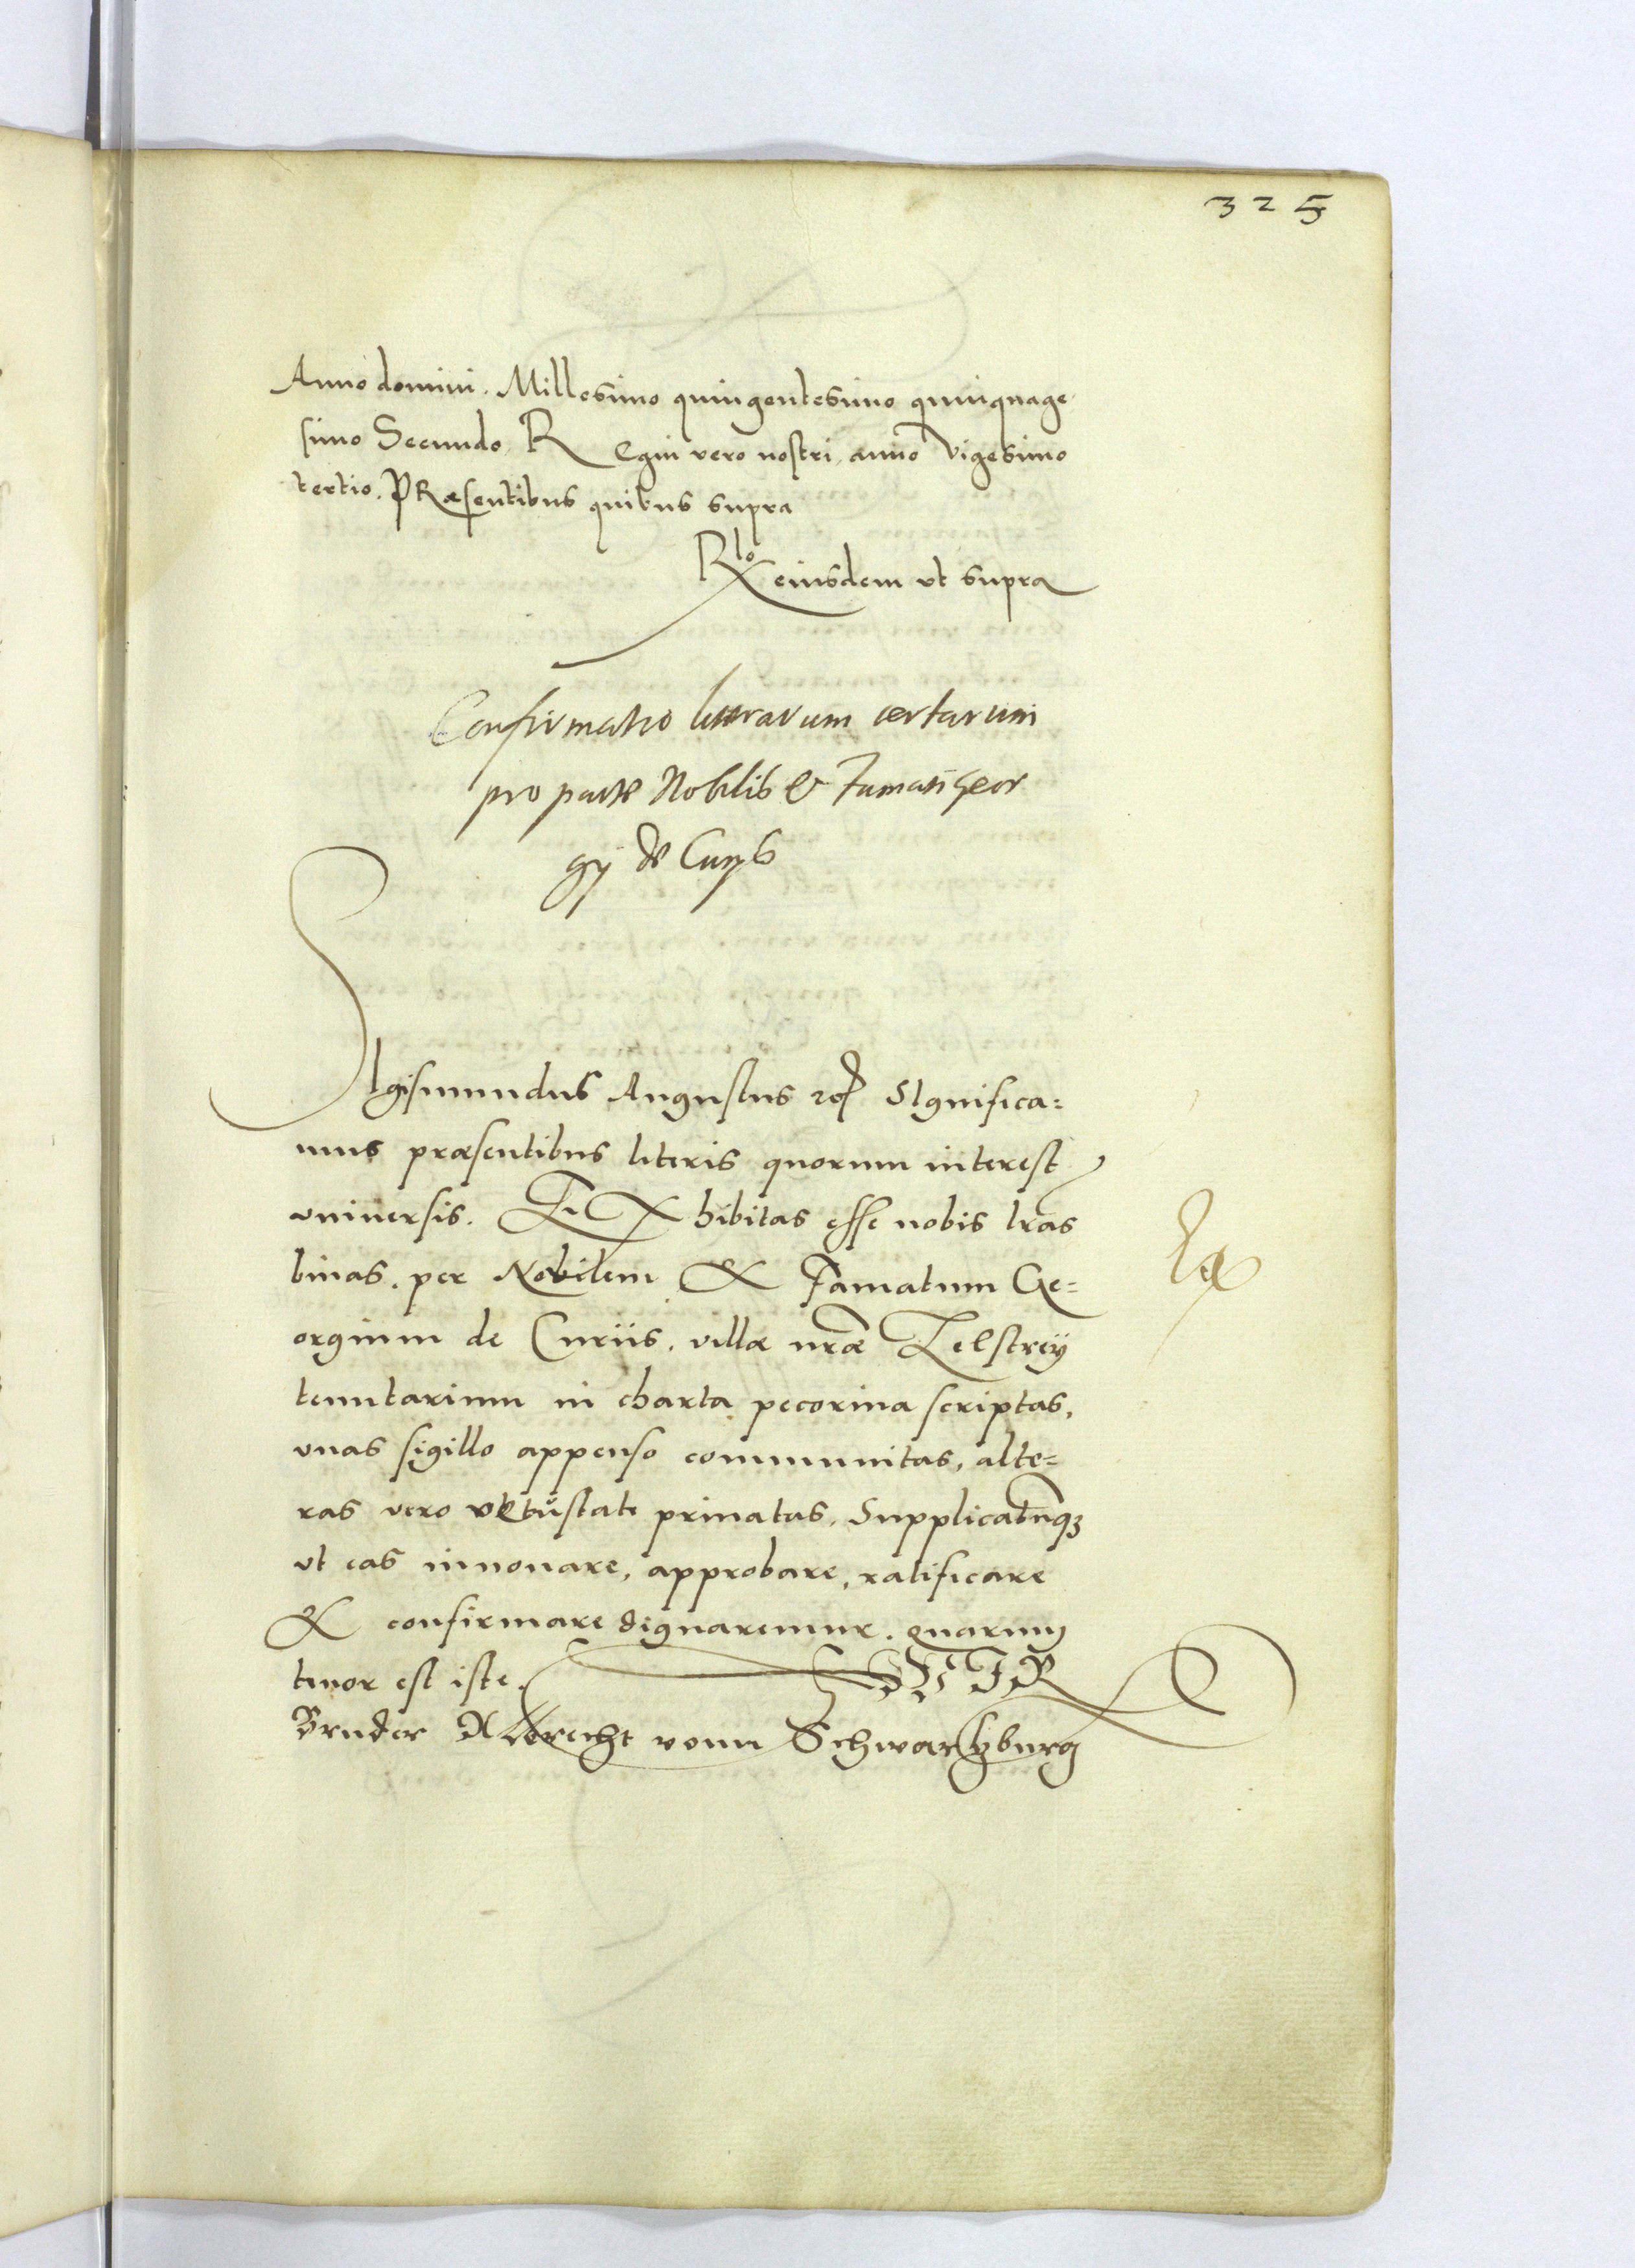 325
Anno domini. Millesimo quingentesimo quinquage
simo Secundo, R Egni vero nostri, anno vigesimo
tertio. PRæsentibus quibus supra
Rlo eiusdem vt supra
Confirmatio litterarum certarum
pro parte Nobilis & Famati Geor
gÿ de Curÿs
SIgismundus Augustus rex SIgnifica=
mus præsentibus literis quorum interest
vniuersis. EXhibitas esse nobis lras
binas. per Nobilem & Famatum Ge=
orgium de Curiis, villæ nræ
tenutarium in charta pecorina scriptas,
vnas sigillo appenso communitas, alte=
ras vero vetustate priuatas, Supplicatumq3
vt eas innouare, approbare, ratificare
& confirmare dignaremur. quarum
tenor est iste. WIR
Bruder Albrecht vonn Schwartzburg